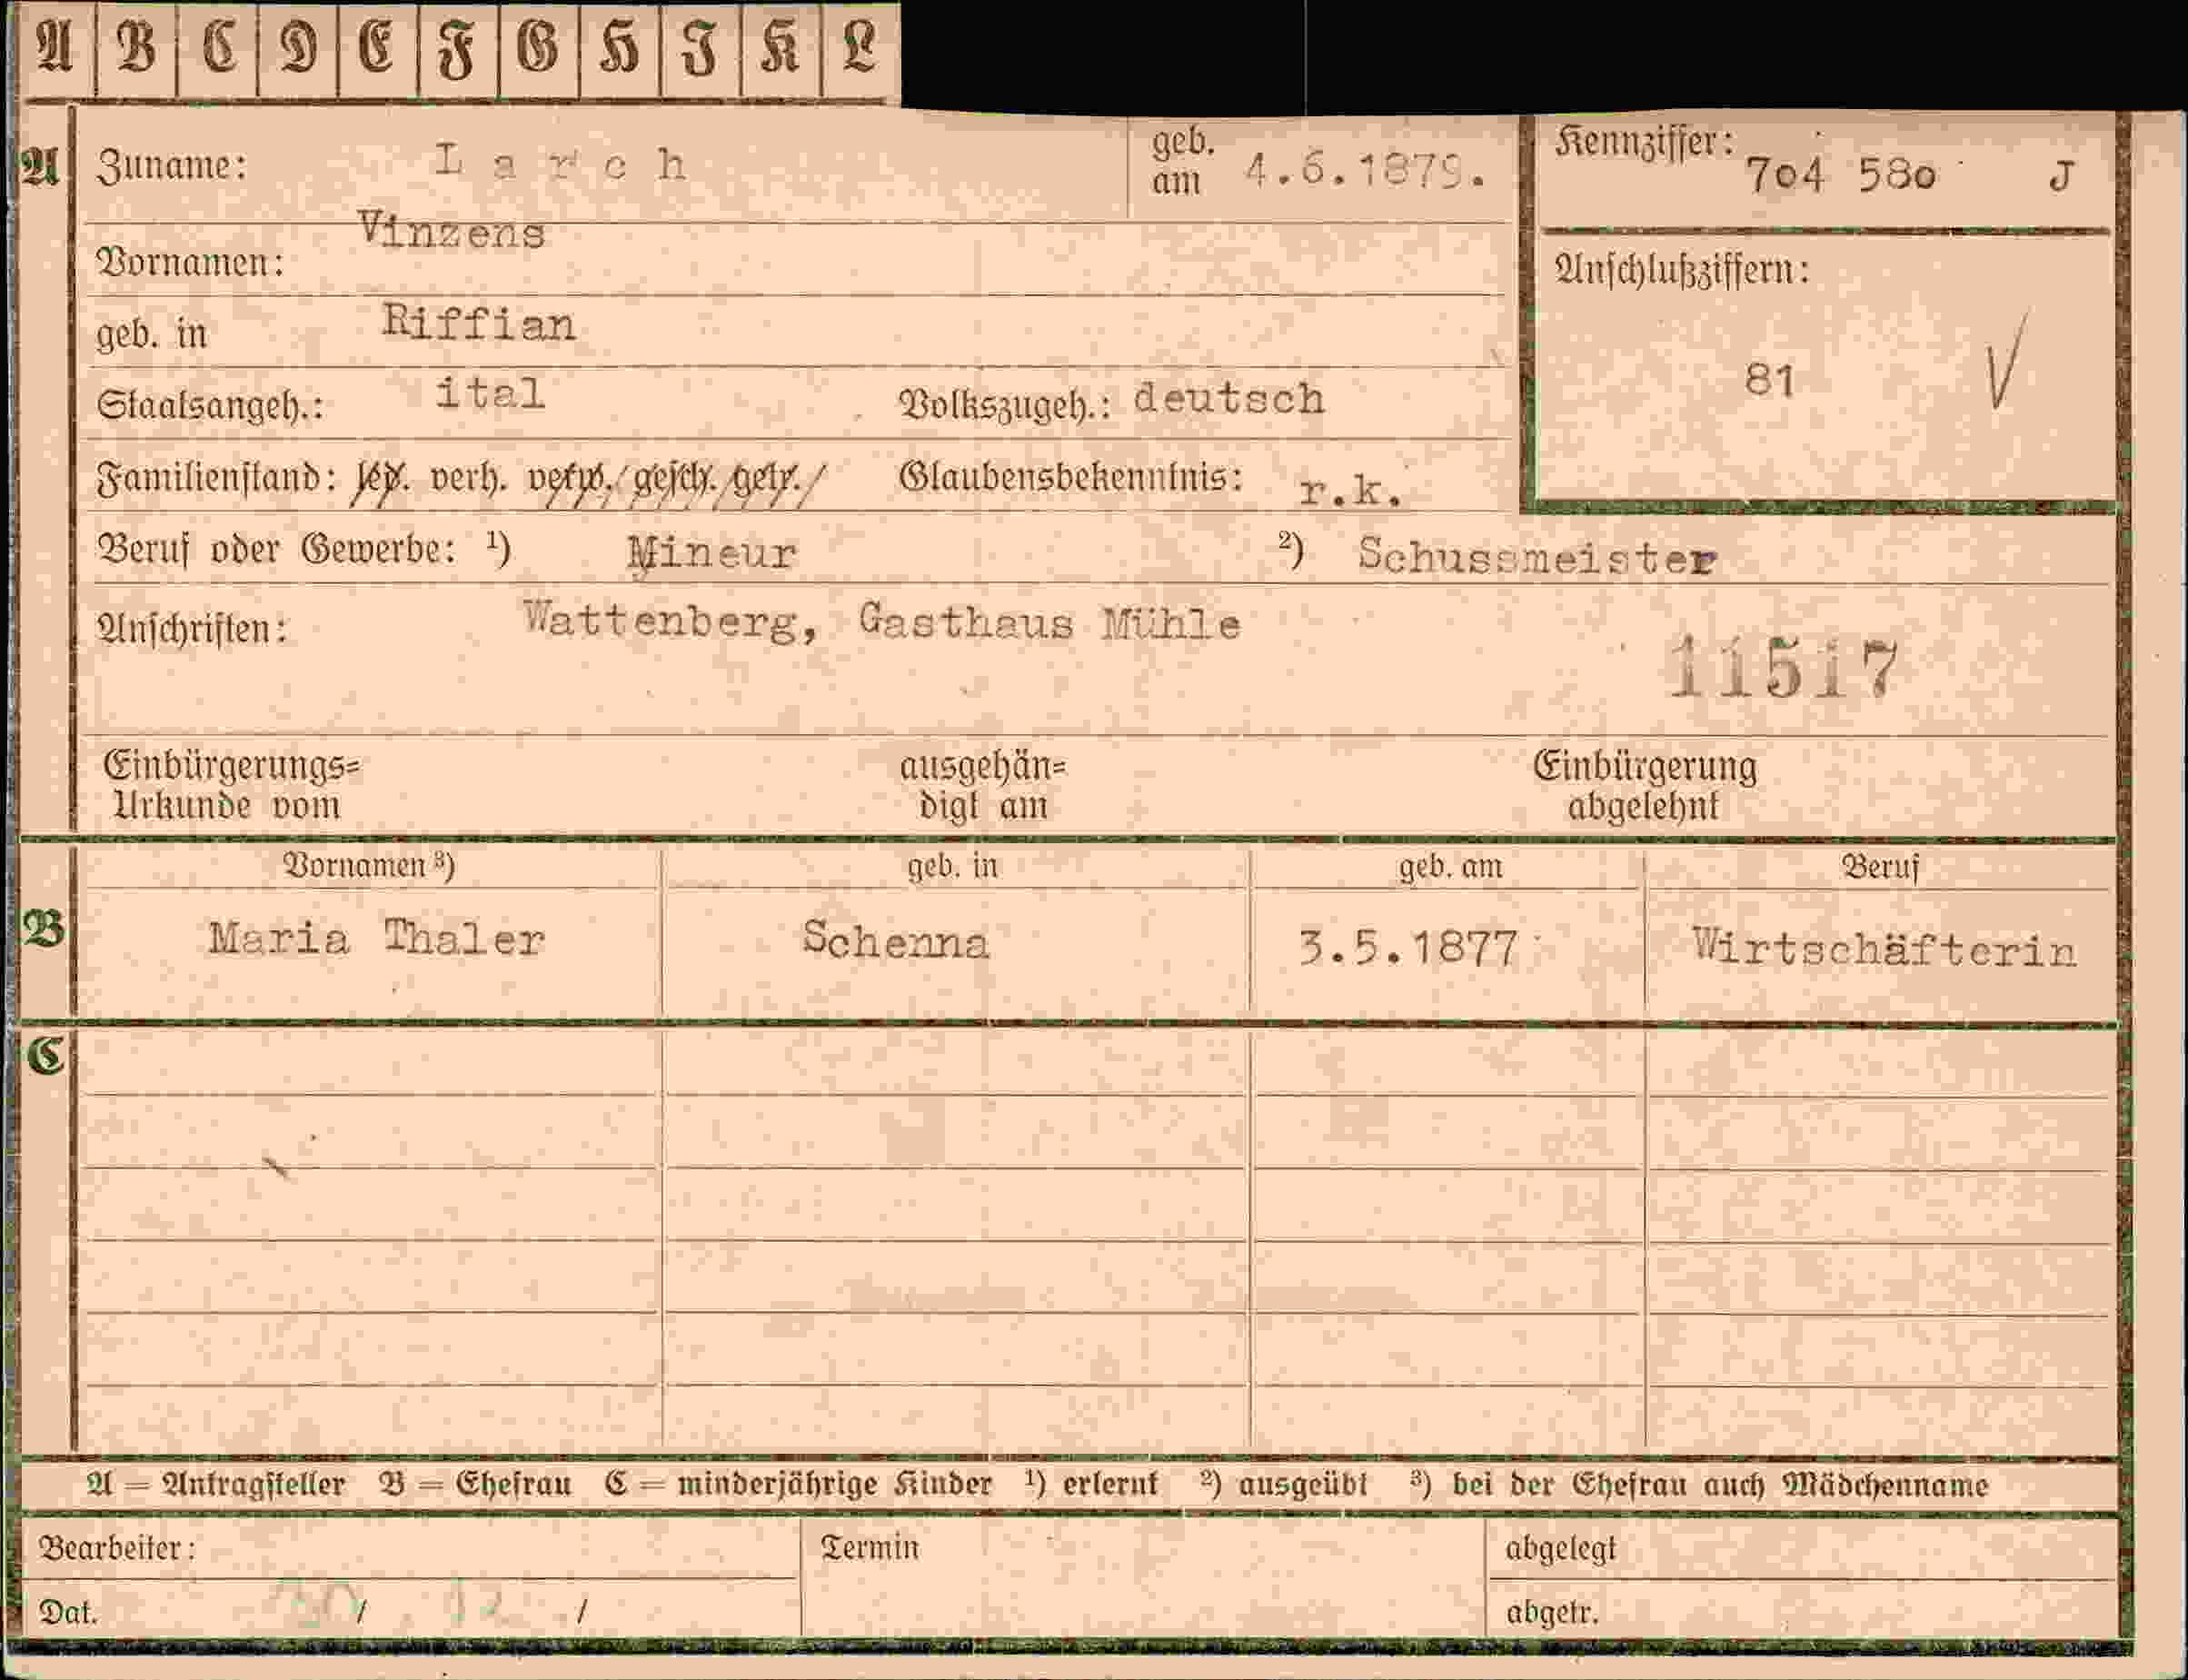 A B C D E F G H I K L
A Zuname: Larch geb. am 4.6.1879. Kennziffer: 704 580 J
Vornamen: Vinzens
Anschlußziffern:
geb. in Riffian
81 V
Staatsangeh.: ital Volkszugeh.: deutsch
Familienstand: led. verh. verw. gesch. getr. Glaubensbekenntnis: r.k.
Beruf oder Gewerbe: ¹) Mineur ²) Schussmeister
Anschriften: Wattenberg, Gasthaus Mühle
11517
Einbürgerungs= ausgehän= Einbürgerung
Urkunde vom digt am abgelehnt
Vornamen ³) geb. in geb. am Beruf
B Maria Thaler Schenna 3.5.1877 Wirtschäfterin
C
A = Antragsteller B = Ehefrau C = minderjährige Kinder ¹) erlernt ²) ausgeübt ³) bei der Ehefrau auch Mädchenname
Bearbeiter: Termin abgelegt
Dat. / / abgetr.